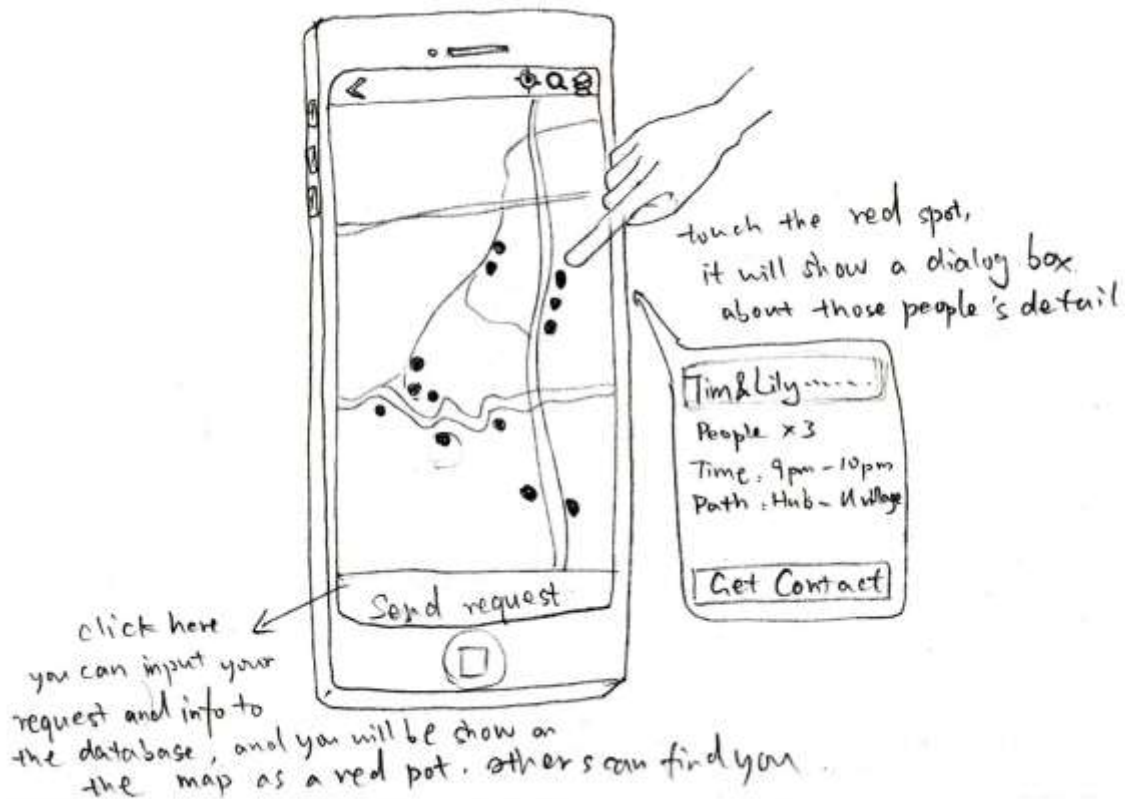 touch the red spot,
it will show a dialog box
about those people's detail
Tim&Lily......
People ×3
Time: 9pm - 10pm
Path: Hub - U village
Get Contact
Send request
click here
you can input your
request and info to
the database, and you will be show on
the map as a red pot. others can find you.